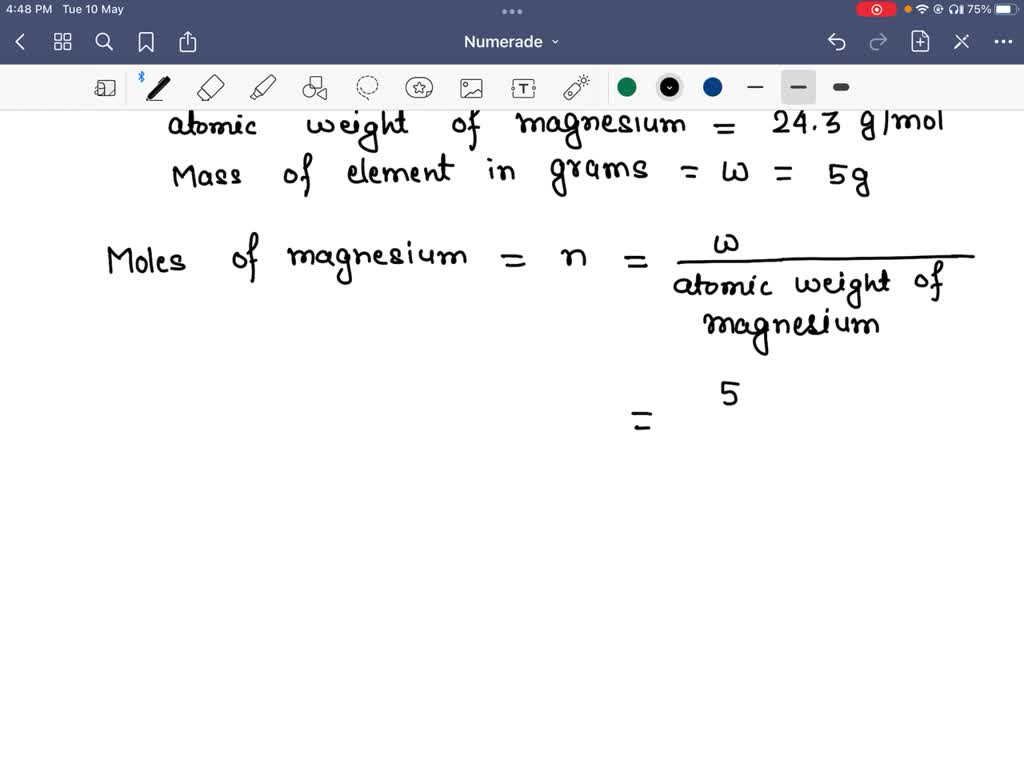 4:48 PM Tue 10 May 75%
Numerade
T
atomic weight of magnesium = 24.3 g/mol
Mass of element in grams = w = 5g
Moles of magnesium = n = w
atomic weight of
magnesium
= 5